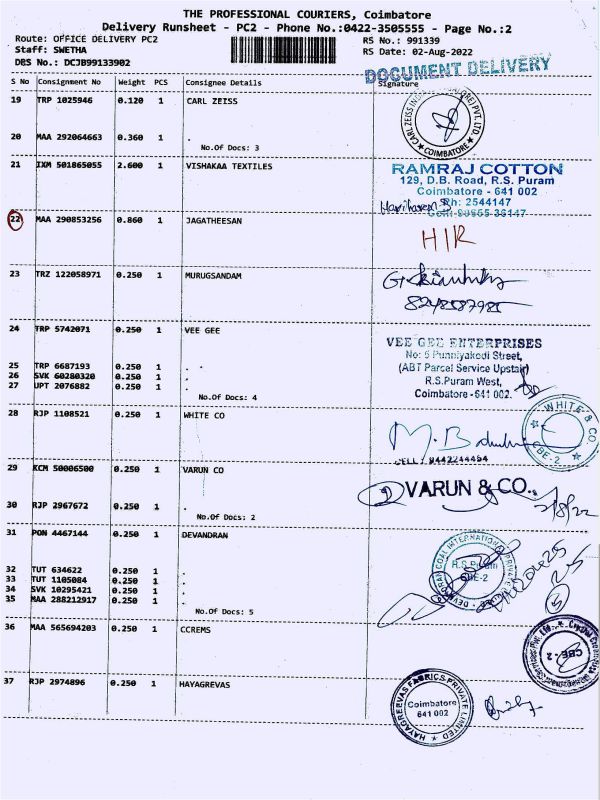 THE PROFESSIONAL COURIERS, Coimbatore
Delivery Runsheet - PC2 - Phone No.:0422-3505555 - Page No.:2
Route: OFFICE DELIVERY PC2
RS No.: 991339
Staff: SWETHA
RS Date: 02-Aug-2022
DBS No.: DCJB99133902
DOCUMENT DELIVERY
S No Consignment No Weight PCS Consignee Details Signature
19 TRP 1025946 0.120 1 CARL ZEISS
COIMBATORE
20 MAA 292064663 0.360 1
No.Of Docs: 3
21 IXM 501865055 2.600 1 VISHAKAA TEXTILES
RAMRAJ COTTON
129, D.B. Road, R.S. Puram
Coimbatore - 641 002
Ph: 2544147
22 MAA 290853256 0.860 1 JAGATHEESAN
H/R
23 TRZ 122058971 0.250 1 MURUGSANDAM
24 TRP 5742071 0.250 1 VEE GEE
VEE GEE ENTERPRISES
No: 5 Punniyakodi Street,
(ABT Parcel Service Upstair)
R.S.Puram West,
Coimbatore - 641 002.
25 TRP 6687193 0.250 1 . .
26 SVK 60280320 0.250 1 .
27 UPT 2076882 0.250 1 .
No.Of Docs: 4
28 RJP 1108521 0.250 1 WHITE CO
WHITE & CO
CBE-2
CELL: 9442244454
29 KCM 50006500 0.250 1 VARUN CO
VARUN & CO.,
2/8/22
30 RJP 2967672 0.250 1 .
No.Of Docs: 2
31 PON 4467144 0.250 1 DEVANDRAN
DEVENDRAN COAL INTERNATIONAL PRIVATE
R.S.Puram
CBE-2
32 TUT 634622 0.250 1 .
33 TUT 1105084 0.250 1 .
34 SVK 10295421 0.250 1 .
35 MAA 288212917 0.250 1 .
No.Of Docs: 5
36 MAA 565694203 0.250 1 CCREMS
CBE-2
37 RJP 2974896 0.250 1 HAYAGREVAS
HAYAGREEVAS FABRICS PRIVATE LIMITED
Coimbatore
641 002